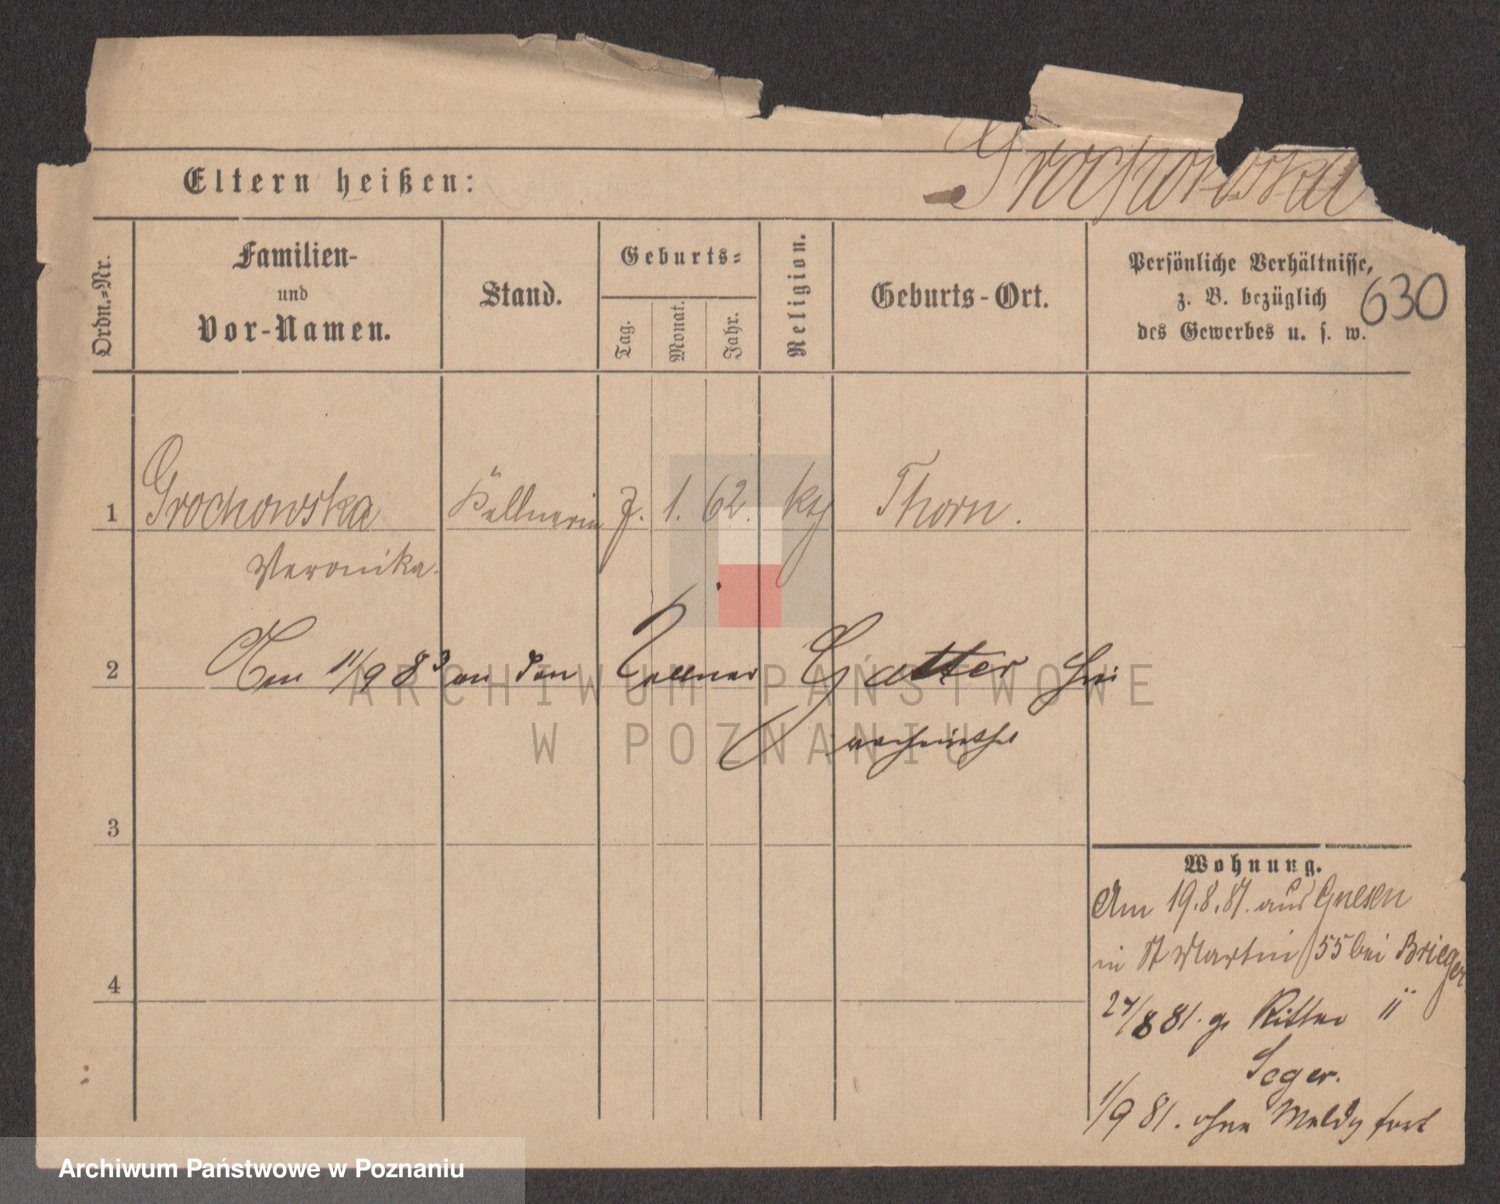 Grochowska
Eltern heißen:
Ordn.-Nr.
Familien-
und
Vor-Namen.
Stand.
Geburts-
Tag.
Monat.
Jahr.
Religion.
Geburts-Ort.
Persönliche Verhältnisse,
z. B. bezüglich
des Gewerbes u. s. w.
630
1 Grochowska Kellnerin 7. 1. 62. Thorn.
Veronika.
2 11/9 83 an den Kellner Gatter
3
4
Wohnung.
Am 19.8.81. aus Gnesen
in St Martin 55 bei Brieger
27/8 81. Ritter 11
Seger.
1/9 81. ohne Meldg fort
ARCHIWUM PAŃSTWOWE
W POZNANIU
Archiwum Państwowe w Poznaniu